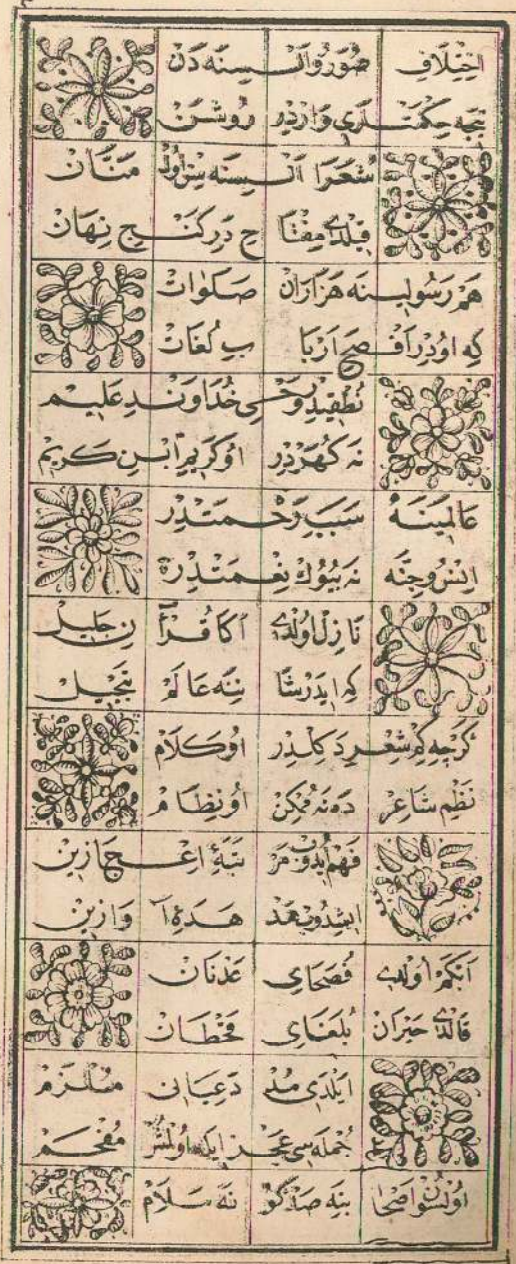 اختلاف صور و السنه دن
نجه حكمتلری واردر روشن
شعرا السنه سن اولد منان
قیلدی مفتاح در كنج نهان
هم رسولینه هزاران صلوات
كه اودر افصح ارباب لغات
نطقیدر وحی خداوند علیم
نه كهردر او كریم ابن كریم
عالمینه سبب رحمتدر
انس و جنه نه بیوك نعمتدر
نازل اولدی اكا قرآن جلیل
كه ایدر شاننه عالم تبجیل
كرچه كم شعر دكلدر او كلام
نظم شاعرده نه ممكن او نظام
فهم ایدوب مرتبهٔ اعجازین
ایشدوب هدهدهٔ آوازین
ابكم اولدی فصحای عدنان
قالدی حیران بلغای قحطان
ایلدی مدعیانی ملزم
جمله سی عجز ایله اولمش مفحم
اولسون اصحابنه صد كونه سلام